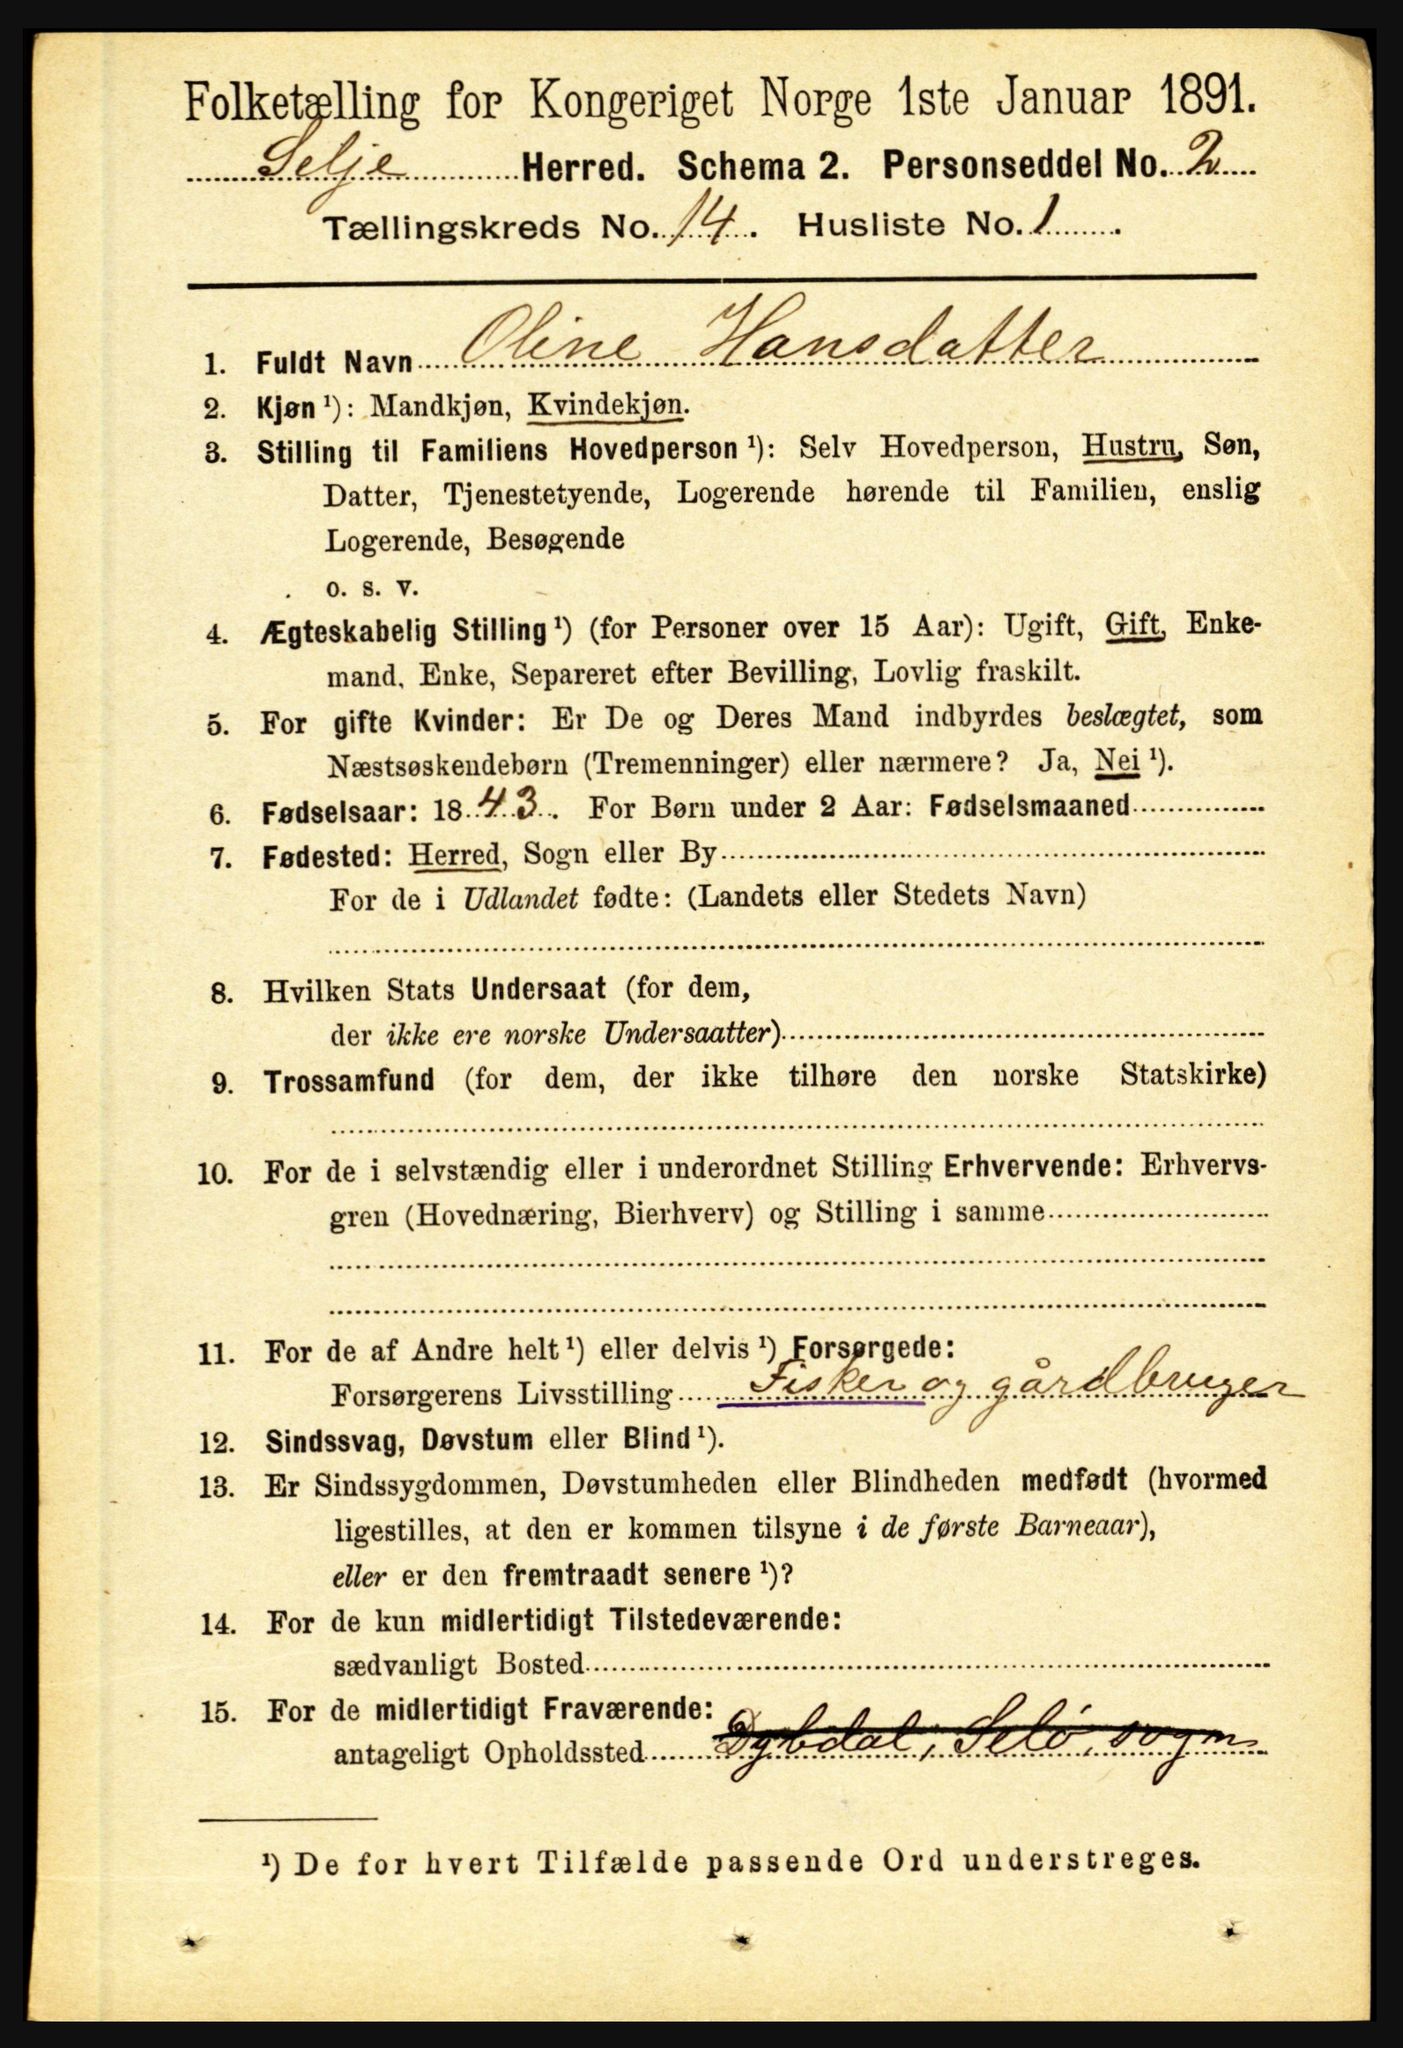 Folketælling for Kongeriget Norge 1ste Januar 1891.
Selje Herred. Schema 2. Personseddel No. 2
Tællingskreds No. 14. Husliste No. 1.
1. Fuldt Navn Oline Hansdatter
2. Kjøn ¹): Mandkjøn, Kvindekjøn.
3. Stilling til Familiens Hovedperson ¹): Selv Hovedperson, Hustru, Søn,
Datter, Tjenestetyende, Logerende hørende til Familien, enslig
Logerende, Besøgende
o. s. v.
4. Ægteskabelig Stilling ¹) (for Personer over 15 Aar): Ugift, Gift, Enke-
mand, Enke, Separeret efter Bevilling, Lovlig fraskilt.
5. For gifte Kvinder: Er De og Deres Mand indbyrdes beslægtet, som
Næstsøskendebørn (Tremenninger) eller nærmere? Ja, Nei ¹).
6. Fødselsaar: 1843. For Børn under 2 Aar: Fødselsmaaned
7. Fødested: Herred, Sogn eller By
For de i Udlandet fødte: (Landets eller Stedets Navn)
8. Hvilken Stats Undersaat (for dem,
der ikke ere norske Undersaatter)
9. Trossamfund (for dem, der ikke tilhøre den norske Statskirke)
10. For de i selvstændig eller i underordnet Stilling Erhvervende: Erhvervs-
gren (Hovednæring, Bierhverv) og Stilling i samme
11. For de af Andre helt ¹) eller delvis ¹) Forsørgede:
Forsørgerens Livsstilling Fisker og gårdbruger
12. Sindssvag, Døvstum eller Blind ¹).
13. Er Sindssygdommen, Døvstumheden eller Blindheden medfødt (hvormed
ligestilles, at den er kommen tilsyne i de første Barneaar),
eller er den fremtraadt senere ¹)?
14. For de kun midlertidigt Tilstedeværende:
sædvanligt Bosted
15. For de midlertidigt Fraværende:
antageligt Opholdssted Dybdal, Selø, sogn
¹) De for hvert Tilfælde passende Ord understreges.